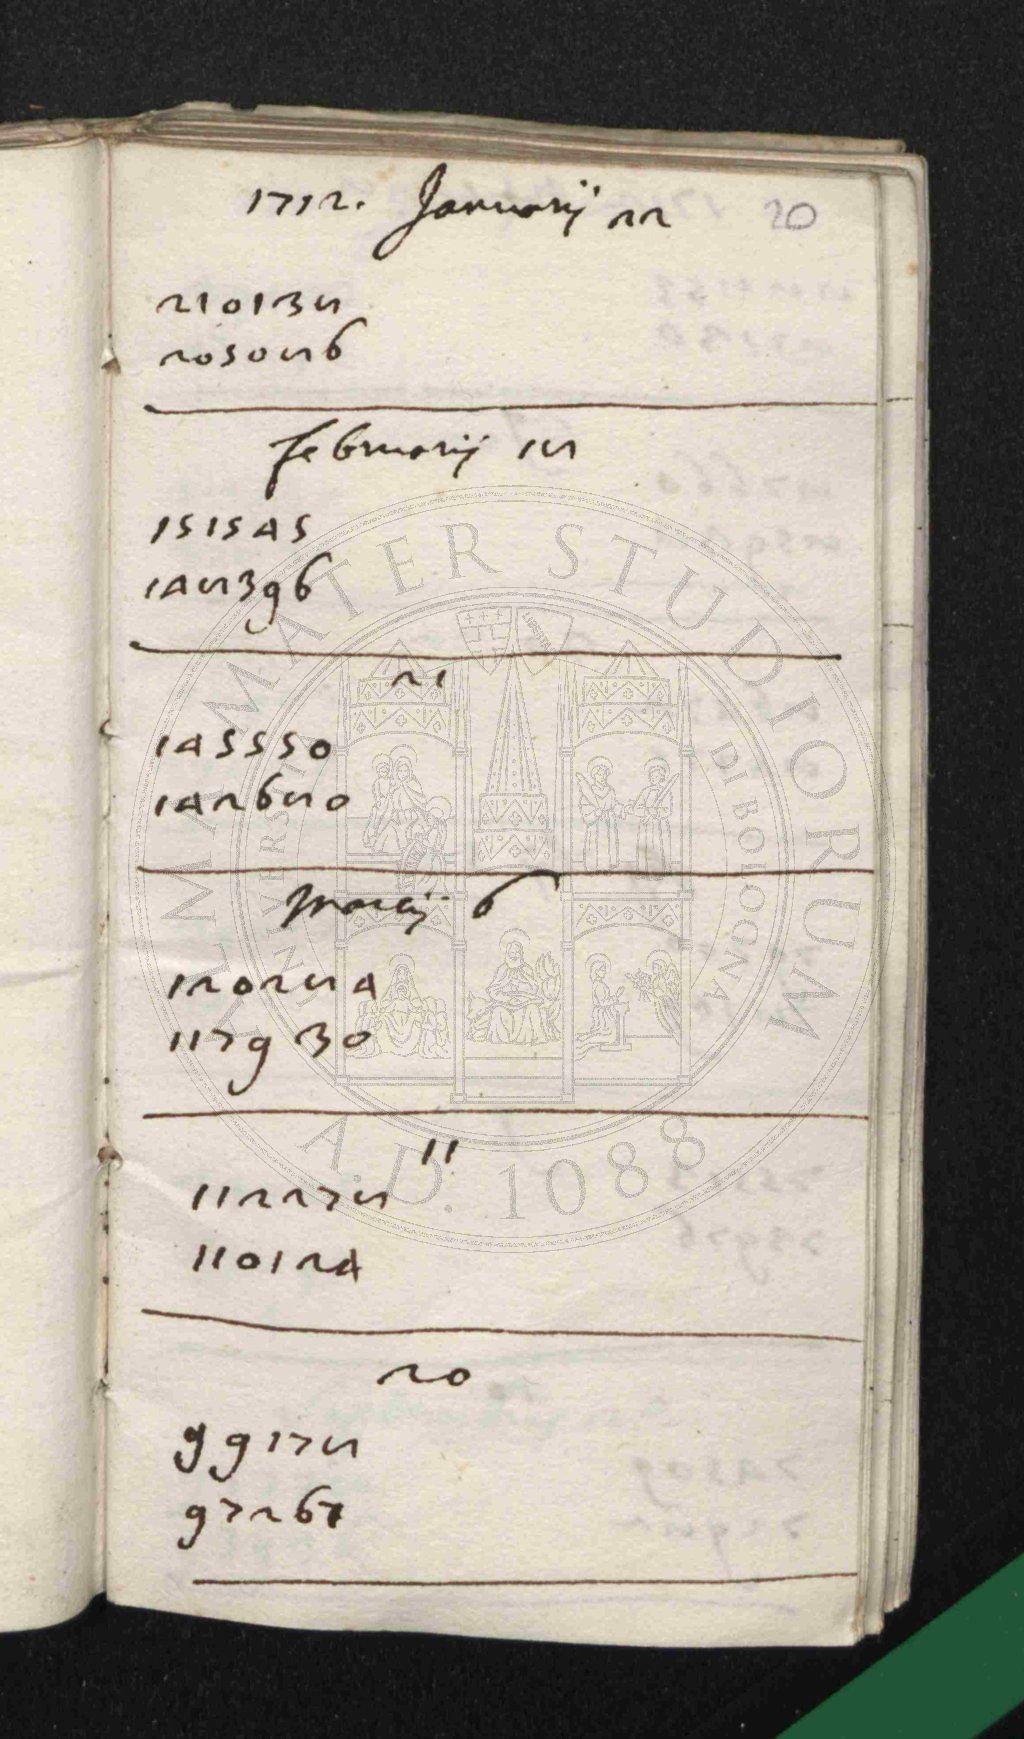 1712. Januarij 22 20
210138
205086
februarij 18
151545
148396
21
145550
142680
Marcij 6
120284
117930
11
112278
110124
20
99178
97267
ALMA MATER STUDIORUM
UNIVERSITÀ DI BOLOGNA
A.D. 1088